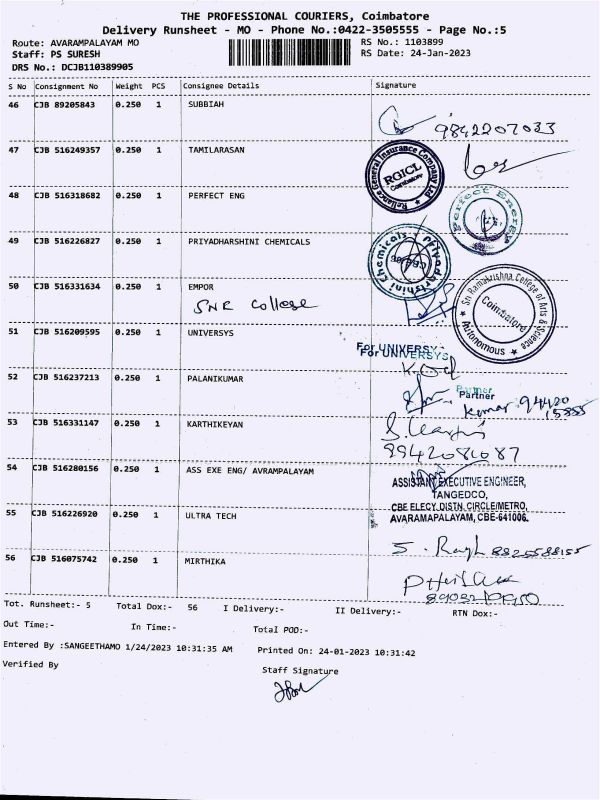 THE PROFESSIONAL COURIERS, Coimbatore
Delivery Runsheet - MO - Phone No.:0422-3505555 - Page No.:5
Route: AVARAMPALAYAM MO
RS No.: 1103899
Staff: PS SURESH
RS Date: 24-Jan-2023
DRS No.: DCJB110389905
S No Consignment No Weight PCS Consignee Details Signature
46 CJB 89205843 0.250 1 SUBBIAH
9842207033
47 CJB 516249357 0.250 1 TAMILARASAN
Reliance General Insurance Company Ltd
RGICL
Coimbatore
48 CJB 516318682 0.250 1 PERFECT ENG
Perfect Energy
49 CJB 516226827 0.250 1 PRIYADHARSHINI CHEMICALS
Priyadarshini Chemicals
50 CJB 516331634 0.250 1 EMPOR
SNR College
Sri Ramakrishna College of Arts & Science
Coimbatore
Autonomous
51 CJB 516209595 0.250 1 UNIVERSYS
For UNIVERSYS
For UNIVERSYS
52 CJB 516237213 0.250 1 PALANIKUMAR
Partner
Partner
Kumar. 94420
15855
53 CJB 516331147 0.250 1 KARTHIKEYAN
54 CJB 516280156 0.250 1 ASS EXE ENG/ AVRAMPALAYAM
ASSISTANT EXECUTIVE ENGINEER,
TANGEDCO,
CBE ELECY. DISTN. CIRCLE/METRO,
AVARAMAPALAYAM, CBE-641006.
55 CJB 516226920 0.250 1 ULTRA TECH
8825588155
56 CJB 516075742 0.250 1 MIRTHIKA
Tot. Runsheet:- 5 Total Dox:- 56 I Delivery:- II Delivery:- RTN Dox:-
Out Time:- In Time:- Total POD:-
Entered By :SANGEETHAMO 1/24/2023 10:31:35 AM Printed On: 24-01-2023 10:31:42
Verified By Staff Signature